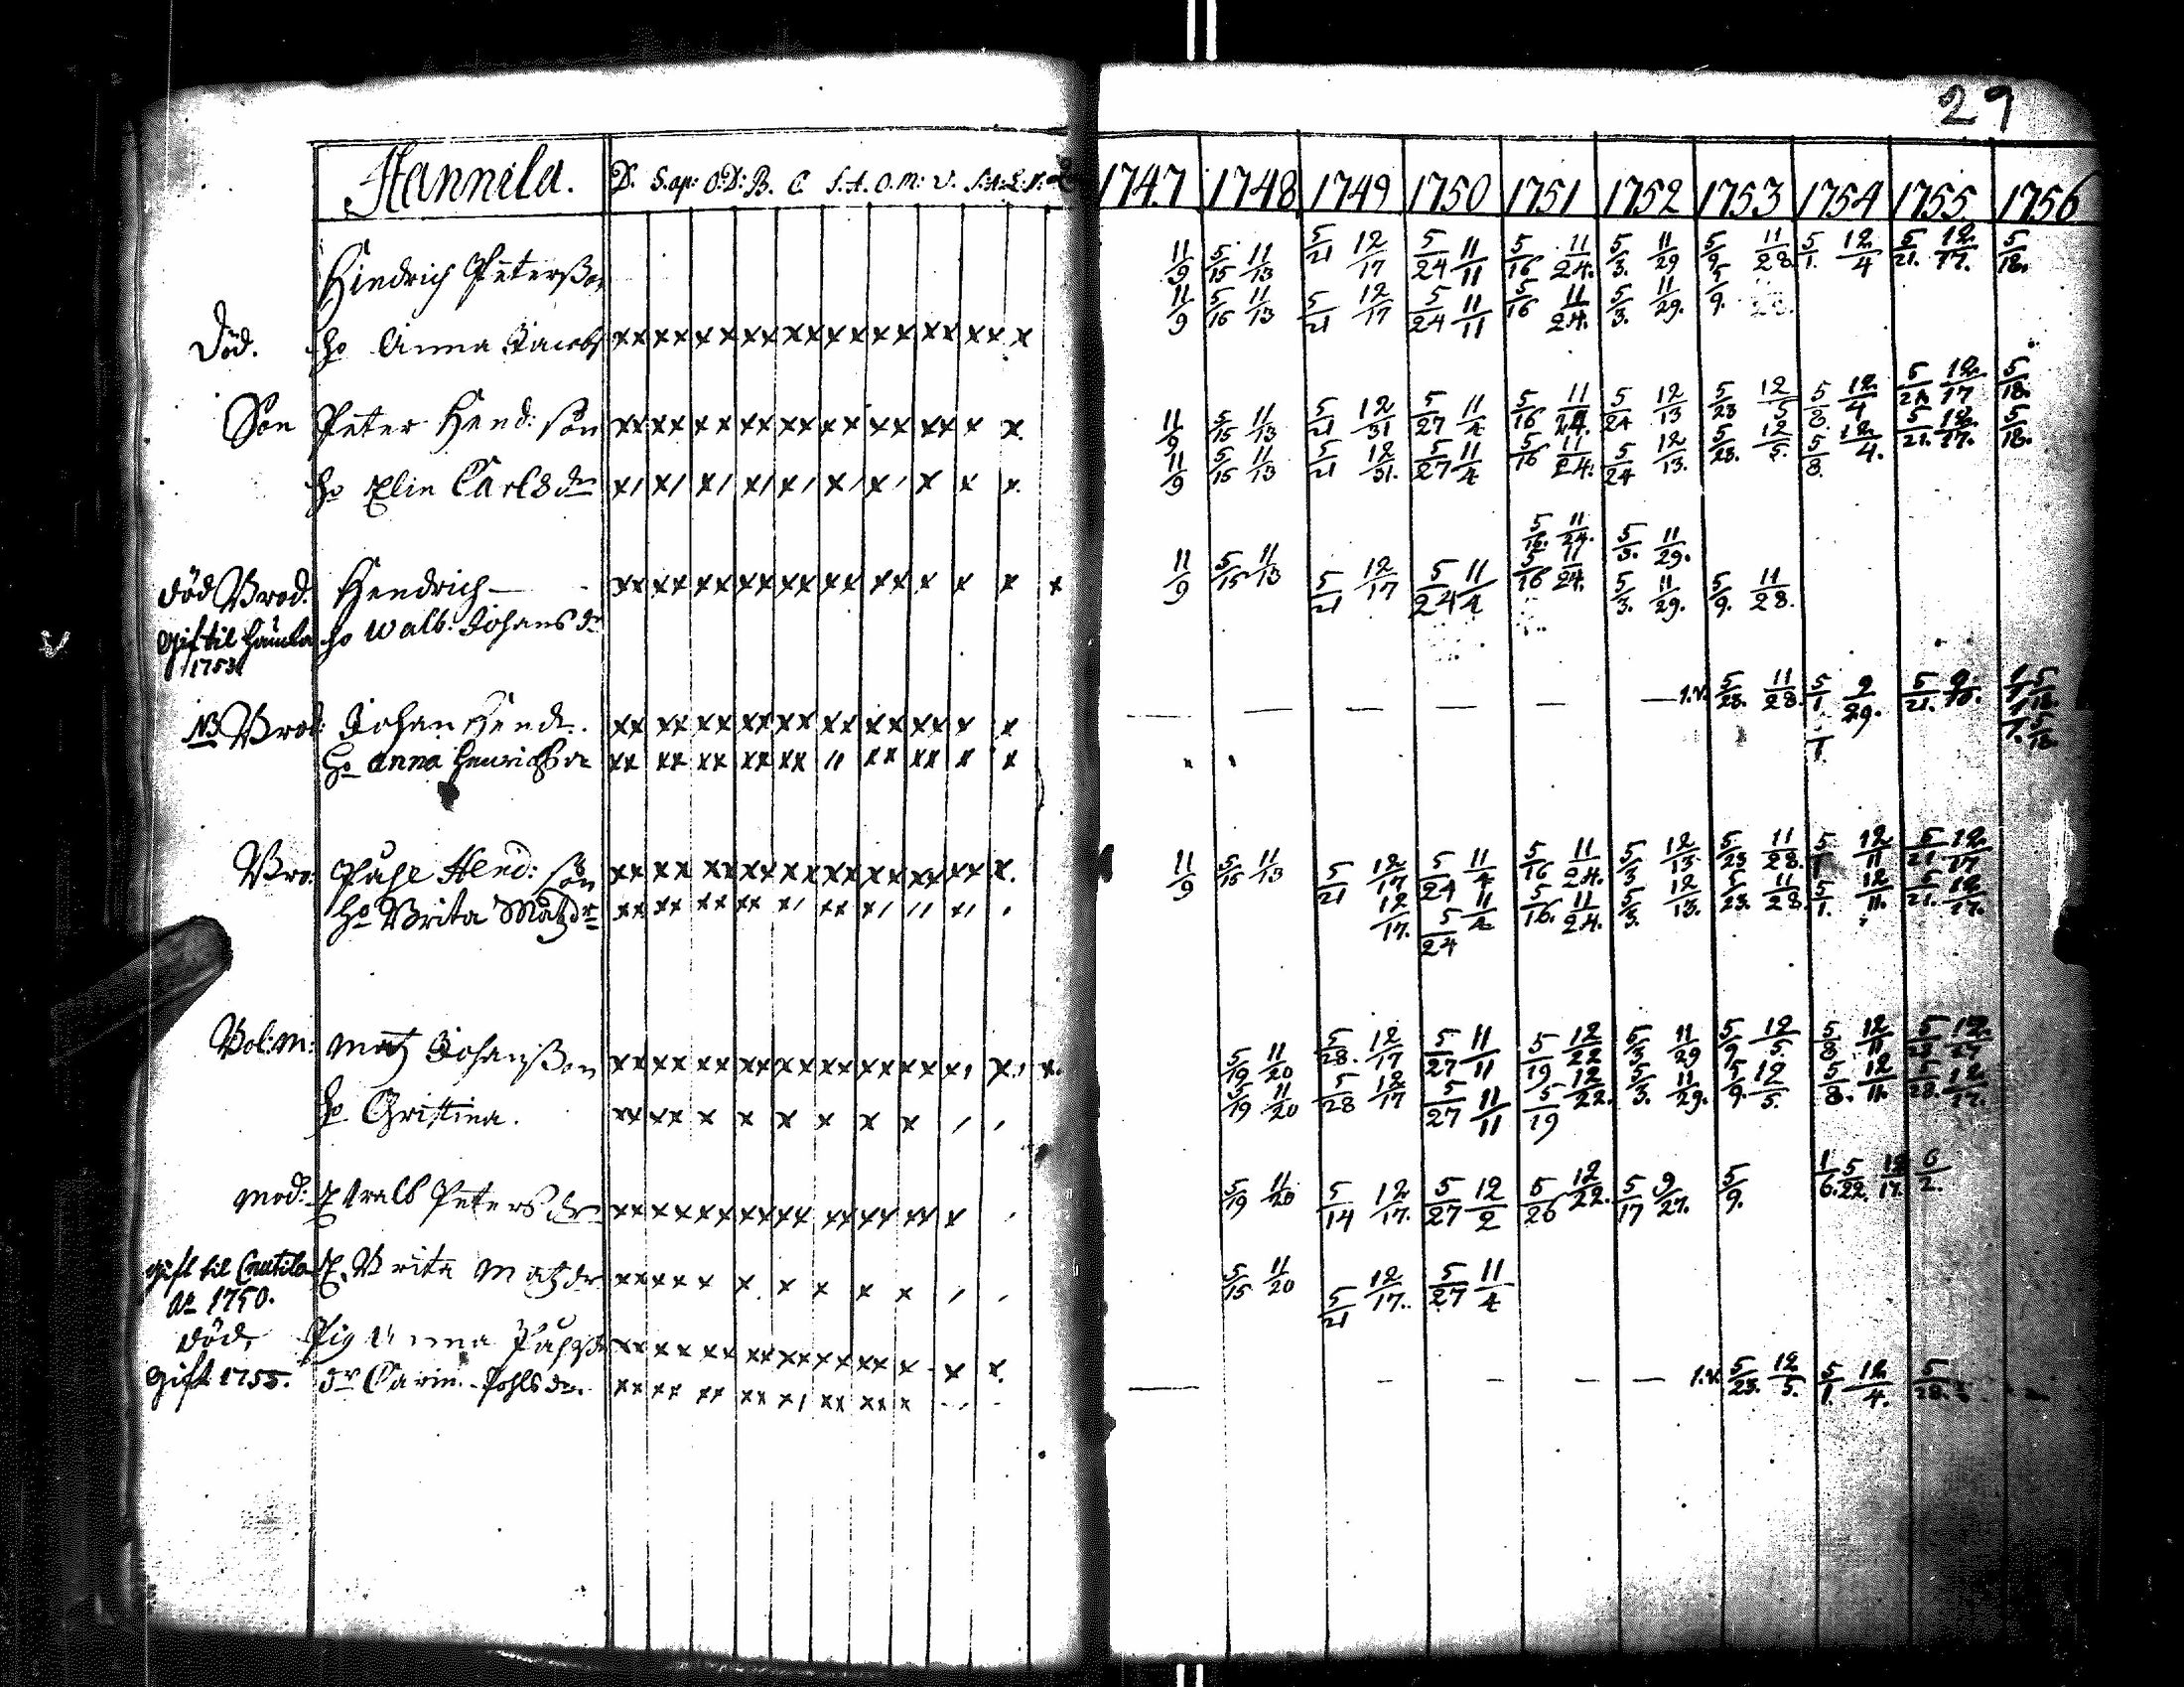 29
Hannila. D. S.ap: O.D: B. C. S.A. O.M: V. 1747 1748 1749 1750 1751 1752 1753 1754 1755 1756
Hindrich Peterßon 11/9 5/15 11/13 5/21 12/17 5/24 11/11 5/16 11/24. 5/3. 11/29 5/9 11/28. 5/1. 12/4 5/21. 12/17. 5/18.
Död. ho Anna Jacobs xx xx xx xx xx xx xx xx xx x 11/9 5/16 11/13 5/21 12/17 5/24 11/11 5/16 11/24. 5/3. 11/29. 5/9.
Son Peter Hend: son xx xx xx xx xx xx xx xx x x 11/9 5/15 11/13 5/21 12/31 5/27 11/4 5/16 11/24. 5/24 12/13 5/23 12/5 5/8. 12/4 5/21. 12/17 5/18.
ho Elin Carls dr x/ x/ x/ x/ x/ x/ x/ x x x 11/9 5/15 11/13 5/21 12/31. 5/27 11/4 5/16 11/24. 5/24 12/13. 5/23. 12/5. 5/8. 12/4. 5/21. 12/17. 5/18.
5/16. 11/24. 5/3. 11/29.
död Brod. Hendrich — xx xx xx xx xx xx xx x x x x 11/9 5/15 11/13 5/21 12/17 5/24 11/4 5/16 11/24. 5/3. 11/29. 5/9. 11/28.
Gift til 1753 ho Walb: Johans dr
NB Brod: Johan Hend. xx xx xx xx xx xx xx xx x x — — — — — — 5/23. 11/28. 5/1 9/29. 5/21.
ho Anna Henrichs dr xx xx xx xx xx // xx xx x x
Bro: Påhl Hend: son xx xx xx xx xx xx xx xx xx x. 11/9 5/15 11/13 5/21 12/17 5/24 11/4 5/16 11/24. 5/3 12/13. 5/23 11/28. 5/1 12/11 5/21 12/17
ho Brita Matz dr xx xx xx xx x/ xx x/ // x/ / 12/17. 5/24 11/4 5/16. 11/24. 5/3. 12/13. 5/23. 11/28. 5/1. 12/11. 5/21. 12/17.
Bol:M: Matz Johanßon xx xx xx xx xx xx xx xx x, x, x. 5/19 11/20 5/28. 12/17 5/27 11/11 5/19 12/22 5/3 11/29 5/9 12/5. 5/8. 12/11
ho Christina. xx xx x x x x x x / / 5/19 11/20 5/28 12/17 5/27 11/11 5/19 12/22. 5/3. 11/29. 5/9. 12/5. 5/8. 12/11. 5/28. 12/17.
mod: E. Walb Peters dr xx xx xx xx xx xx xx xx x / 5/19 11/20 5/14 12/17. 5/27 12/2 5/26 12/22. 5/17 9/27. 5/9. 1/6. 5/22. 12/17. 6/2.
Gift til Ao 1750. E. Brita Matz dr xx xx x x x x x x / / 5/15 11/20 5/21 12/17. 5/27 11/4
död, Pig Anna xx xx xx xx xx xx xx x x x.
Gift 1755. dr Carin Pohls dr. xx xx xx xx x/ xx xx x — — — — — 5/23. 12/5. 5/1. 12/4. 5/28.